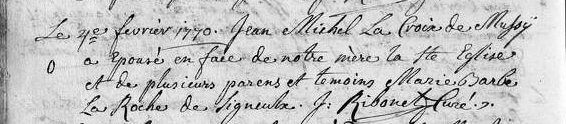 Le 4e fevrier 1770. Jean Michel La Croix de Mussÿ
o a Epousé en face de notre mere la Ste Eglise
et de plusieurs parens et temoins Marie Barbe
La Roche de Signeulx. J: Ribonet Curé.